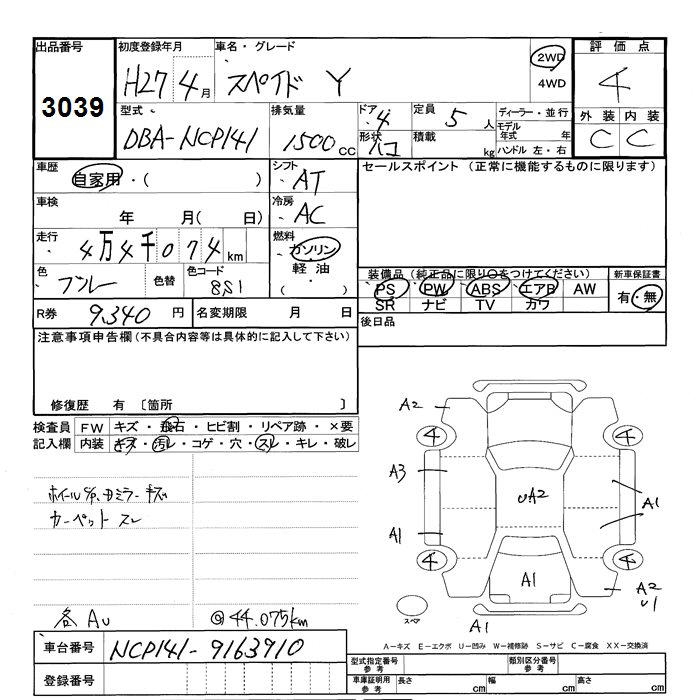 出品番号 初度登録年月 車名・グレード 評価点
3039 H27 4月 スペイド Y 2WD 4WD 4
型式 排気量 ドア 定員 ディーラー・並行 外装 内装
DBA-NCP141 1500cc 4 5人 モデル年式 年 C C
形状 ハコ 積載 kg ハンドル 左・右
車歴 シフト セールスポイント (正常に機能するものに限ります)
自家用・( ) AT
車検 冷房
年 月( 日) AC
走行 燃料
4万4千074km ガソリン
色 色替 色コード 軽油 装備品 (純正品に限り○をつけてください) 新車保証書
ブルー 8S1 ・( ) PS PW ABS エアB AW 有・無
SR ナビ TV カワ
R券 9,340円 名変期限 月 日 後日品
注意事項申告欄(不具合内容等は具体的に記入して下さい)
修復歴 有 〔箇所 〕
検査員 FW キズ・飛石・ヒビ割・リペア跡・×要
記入欄 内装 キズ・汚レ・コゲ・穴・スレ・キレ・破レ
A2
4 4
A3
ホイールC/P、サミラーキズ
カーペットスレ
UA2
A1
A1
4 4
A1
A2
U1
スペア
A1
各AU @44.075km
A－キズ E－エクボ U－凹み W－補修跡 S－サビ C－腐食 XX－交換済
車台番号 NCP141-9163910
型式指定番号 参考 類別区分番号 参考
登録番号
車庫証明用 参考 長さ cm 幅 cm 高さ cm